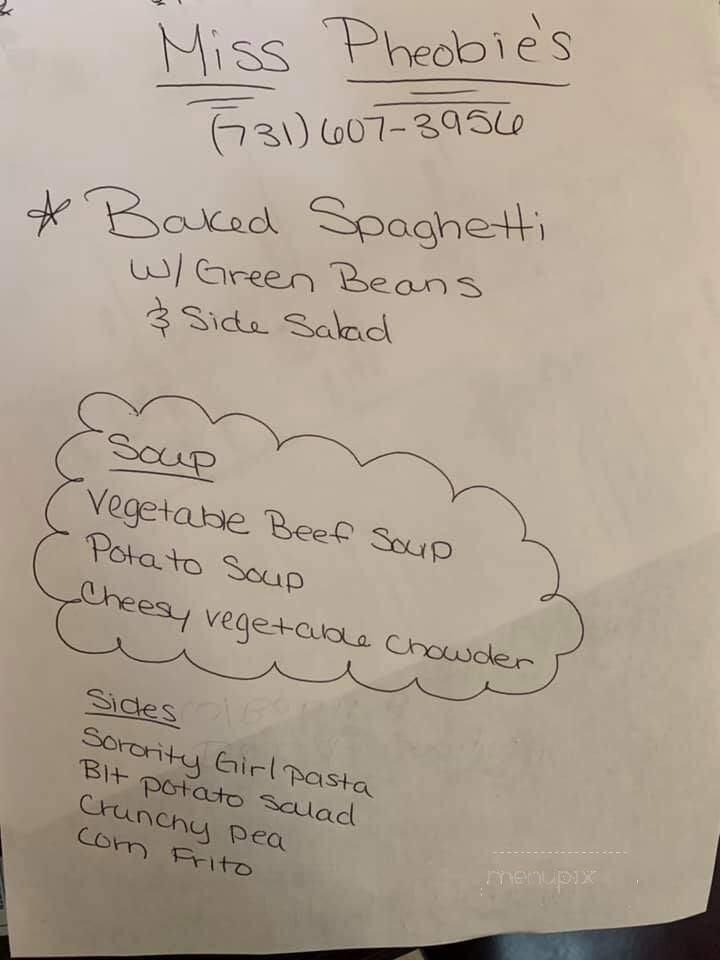 Miss Pheobie's
(731)607-3956
* Baked Spaghetti
w/ Green Beans
& Side Salad
Soup
Vegetable Beef Soup
Potato Soup
Cheesy vegetable chowder
Sides
Sorority Girl pasta
Blt potato salad
Crunchy pea
Corn Frito
menupix